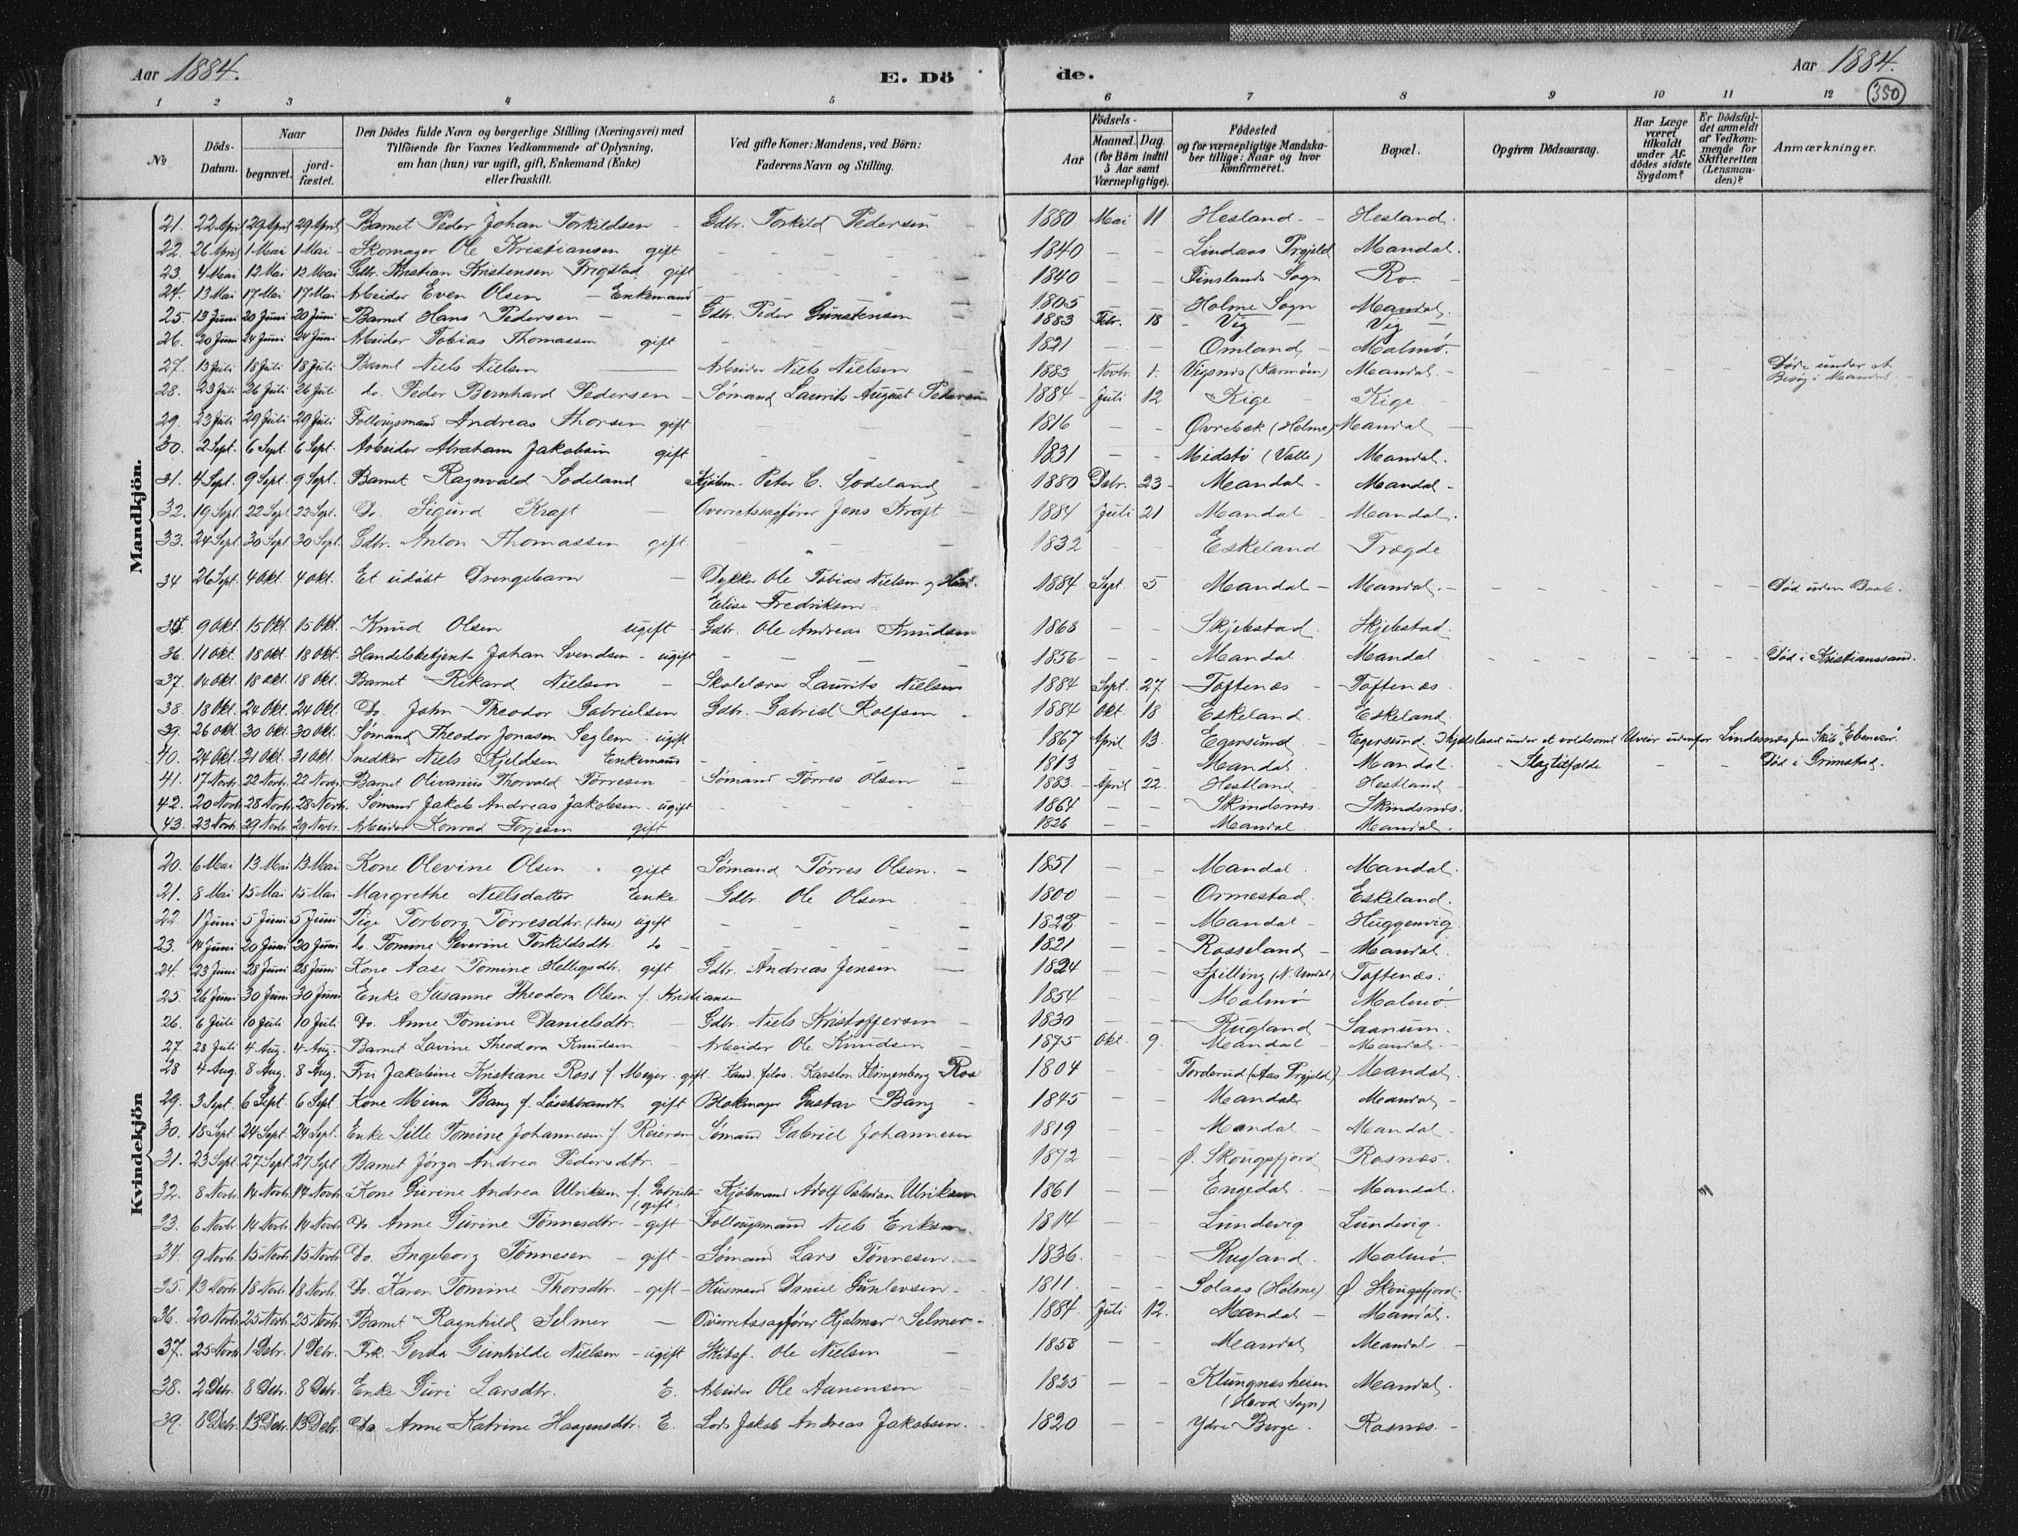 Aar 1884.
E. Dö
de.
Aar 1884.
350
1 2 3 4 5 6 7 8 9 10 11 12
No
Döds-Datum.
Naar
begravet.
jord-fæstet.
Den Dödes fulde Navn og borgerlige Stilling (Næringsvei) med
Tilföiende for Voxnes Vedkommende af Oplysning,
om han (hun) var ugift, gift, Enkemand (Enke)
eller fraskilt.
Ved gifte Koner: Mandens, ved Börn:
Faderens Navn og Stilling.
Födsels-
Aar
Maaned. Dag.
(for Börn indtil
5 Aar samt
Værnepligtige).
Födested
og for værnepligtige Mandska-
ber tillige: Naar og hvor
konfirmeret.
Bopæl.
Opgiven Dödsaarsag.
Har Læge
været
tilkaldt
under Af-
dödes sidste
Sygdom?
Er Dödsfal-
det anmeldt
af Vedkom-
mende for
Skifteretten
(Lensman-
den)?
Anmærkninger.
Mandkjön.
21. 22 April 29 April 29 April Barnet Peder Johan Torkildsen - Gdbr. Torkild Pedersen - 1880 Mai 11 Hesland - Hesland.
22. 26 April 1 Mai 1 Mai - Skomager Ole Kristiansen gift - 1840 - - Lindaas Prgjeld Mandal.
23. 4 Mai 12 Mai 12 Mai Gdbr. Kristian Kristensen Frigstad gift - 1840 - - Finslands Sogn Ro -
24. 13 Mai 17 Mai 17 Mai Arbeider Even Olsen - Enkemand - 1805 - - Holme Sogn Mandal.
25. 13 Juni 20 Juni 20 Juni Barnet Hans Pedersen - Gdbr. Peder Gunstensen - 1883 Febr. 18 - Vig - Vig -
26. 20 Juni 24 Juni 24 Juni Arbeider Tobias Thomassen gift - 1821 - - Omland - Malmö.
27. 13 Juli 18 Juli 18 Juli Barnet Niels Nielsen - Arbeider Niels Nielsen - 1883 Novbr. 1. Vigsnes (Karmöen) Mandal - Döde under et
Besög i Mandal.
28. 23 Juli 26 Juli 26 Juli do. Peder Bernhard Pedersen - Sømand Laurits August Pedersen 1884 - Juli 12 Kige - Kige -
29. 23 Juli 29 Juli 29 Juli Follougsmand Andreas Thorsen gift - 1816 - - Øvrebøk (Holme) Mandal -
30. 2 Sept. 6 Sept. 6 Sept. Arbeider Abraham Jakobsen gift - 1831 - - Midstö (Valle) Mandal.
31. 4 Sept. 9 Sept. 9 Sept. Barnet Ragnvald Sodeland Kjöbm. Peter C. Sodeland - 1880 Debr. 23 - Mandal - Mandal -
32. 19 Sept. 22 Sept 22 Sept. Do. Sigurd Kraft - Overretssagfører Jens Kraft - 1884 Juli 21 Mandal - Mandal.
33. 24 Sept 30 Sept 30 Sept. Gdbr. Anton Thomassen gift - 1832 - - Eskeland Trægde
34 26 Sept. 4 Okt. 4 Okt. Et udöbt Drengebarn - Dykker Ole Tobias Nielsen og Hust.
Elise Fredriksen 1884 Sept. 5 Mandal - Mandal. - Död uden Daab.
35 9 Okt. 15 Okt. 15 Okt. Knud Olsen ugift - Gdbr. Ole Andreas Knudsen 1868 - - Skjebstad. Skjebstad.
36. 11 Okt. 18 Okt. 18 Okt. Handelsbetjent Johan Svendsen - ugift - 1856 - - Mandal. Mandal. - Död i Kristianssand.
37. 14 Okt. 18 Okt. 18 Okt. Barnet Rikard Nielsen - Skolelærer Laurits Nielsen 1884 Sept. 27 Toftenæs - Toftenæs.
38. 18 Okt. 24 Okt. 24 Okt. Do. John Theodor Gabrielsen Gdbr. Gabriel Rolfsen - 1884 Okt. 18 Eskeland. Eskeland.
39. 26 Okt. 30 Okt. 30 Okt. Sømand Theodor Jonasen Seglem - ugift - 1867 April 13. Egersund - Egersund. Ihjelslaaet under et voldsomt Uveir udenfor Lindesnæs paa Skib "Ebeneser".
40. 24 Okt. 31 Okt. 31 Okt. Snedker Niels Kjeldsen Enkemand - 1813 - - Mandal. Mandal - Slagtilfælde - Död i Grimstad.
41. 17 Novbr. 22 Novbr. 22 Novbr. Barnet Olivarius Thorvald Törresen - Sømand Törres Olsen - 1883. - April 22. Hestland - Hestland -
42. 20 Novbr. 28 Novbr. 28 Novbr. Sømand Jakob Andreas Jakobsen. ugift - 1864 - - Skindsnæs. Skindsnæs.
43. 23 Novbr. 29 Novbr. 29 Novbr. Arbeider Konrad Torjesen gift - 1826 - - Mandal. Mandal.
Kvindekjön
20. 6 Mai 13 Mai 13 Mai Kone Olevine Olsen . gift Sømand Törres Olsen. - 1851 - - Mandal. Mandal.
21. 8 Mai 15 Mai 15 Mai Margrethe Nielsdatter Enke Gdbr. Ole Olsen 1800 - - Ormestad. Eskeland.
22. 1 Juni 5 Juni 5 Juni Pige Torborg Törresdtr. ugift - 1828 - - Mandal - Huggenvig.
23. 14 Juni 20 Juni 20 Juni do. Tomine Severine Torkildsdtr. do - 1821 - - Rosseland - Mandal.
24. 23 Juni 28 Juni 28 Juni Kone Aase Tomine Helligsdtr. gift Gdbr. Andreas Jensen - 1824 - - Spilling (N. Undal) Toftenæs.
25. 26 Juni 30 Juni 30 Juni Enke Susanne Theodora Olsen f. Kristiansen 1854 - - Malmö Malmö.
26. 6 Juli 10 Juli 10 Juli Do. Anne Tomine Danielsdtr. - Gdbr. Niels Kristoffersen - 1830 - - Rugland - Saanum.
27. 28 Juli 4 Aug. 4 Aug. Barnet Lavine Theodora Knudsen - Arbeider Ole Knudsen - 1875 Okt. 9. Mandal - Mandal. -
28 4 Aug. 8 Aug. 8 Aug. Fru Jakobine Kristiane Ross f. Meyer. gift. Kand. filos. Karsten Klingenberg Ross 1804 - - Torderud (Aas Prgjeld) - Mandal.
29. 3 Sept. 6 Sept. 6 Sept. Kone Mina Bang f. gift Blokmager Gustav Bang - 1845 - - Mandal Mandal -
30. 18 Sept. 24 Sept. 24 Sept. Enke Sille Tomine Johannesen f. Reiersen Sømand Gabriel Johannesen 1819 - - Mandal - Mandal.
31. 23 Sept. 27 Sept. 27 Sept Barnet Jørga Andrea Pedersdtr. - 1872 - - Ø. Skougsfjord Rosnæs.
32. 8 Novbr. 14 Novbr. 14 Novbr. Kone Gurine Andrea Ulriksen f. Gabrielsen
(gift) Kjöbmand Adolf Ulriksen 1861 - - Engedal. - Mandal.
33. 6 Novbr. 14 Novbr. 14 Novbr. Do. Anne Gurine Tønnesdtr. - gift - Follougsmand Niels Eriksen 1814 - - Lundevig Lundevig.
34. 9 Novbr. 15 Novbr. 15 Novbr. Do. Ingeborg Tønnesen - gift - Sømand Lars Tønnesen. - 1836. - - Rugland. Malmö.
35. 13 Novbr. 18 Novbr. 18 Novbr. Do. Karen Tomine Thorsdtr. - gift - Husmand Daniel Guntevsen - 1811. - - Solaas (Holme) Ø Skougsfjord.
36. 20 Novbr. 25 Novbr. 25 Novbr. Barnet Ragnhild Selmer - Overretssagfører Hjalmar Selmer - 1884. Juli 12. Mandal - Mandal.
37. 25 Novbr. 1 Debr. 1 Debr. Frk. Gerda Gunhilde Nielsen - ugift Skibsf. Ole Nielsen - 1858 - - Mandal Mandal -
38. 2 Debr. 8 Debr. 8 Debr. Enke Guri Larsdtr. E. Arbeider Ole Aanensen - 1825 - - Klungnesheien
(Herod Sogn) Mandal.
39. 8 Debr. 13 Debr. 13 Debr. Do. Anne Katrine Haagensdtr. E. Lods Jakob Andreas Jakobsen. - 1820 - - Ydre Berge. Rosnæs. -